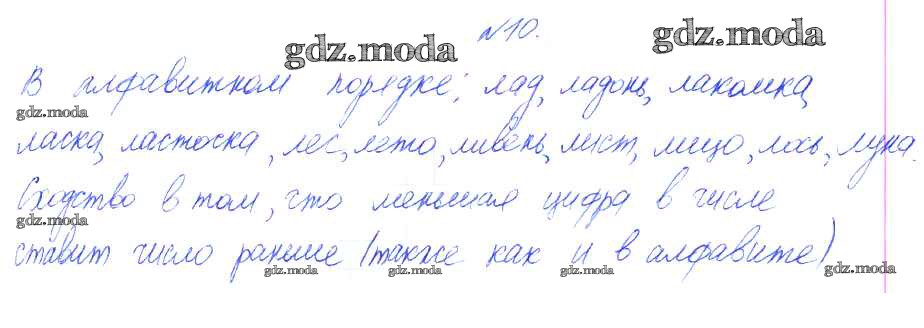 №10.
gdz.moda gdz.moda
В алфавитном порядке: лад, ладонь, лакомка,
gdz.moda
ласка, ласточка, лес, лето, ливень, лист, лицо, лось, луна.
Сходство в том, что меньшая цифра в числе
gdz.moda
ставит число раньше (также как и в алфавите)
gdz.moda gdz.moda gdz.moda gdz.moda